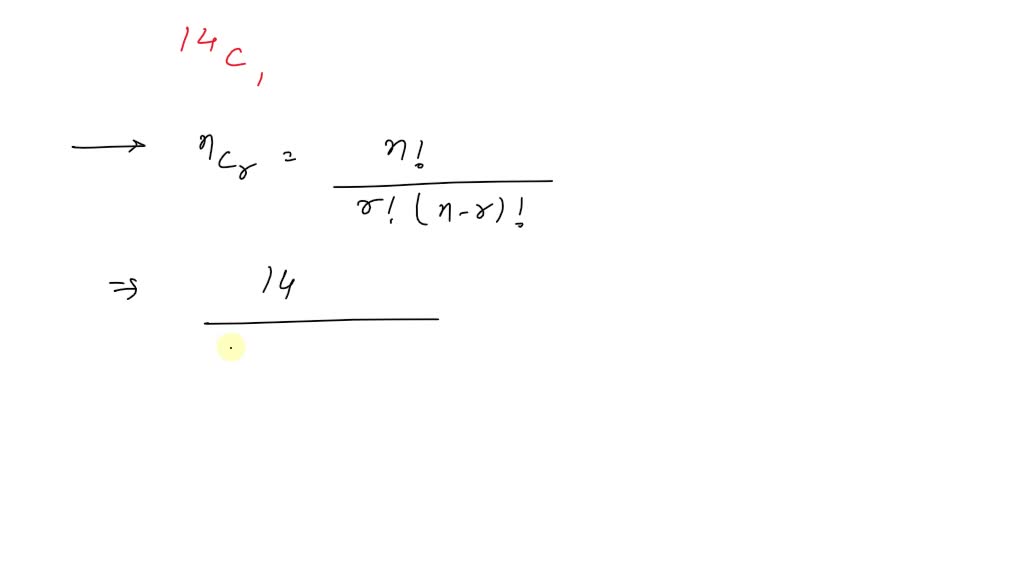 ¹⁴C₁
→ ⁿCᵣ = n! / r! (n-r)!
⇒ 14